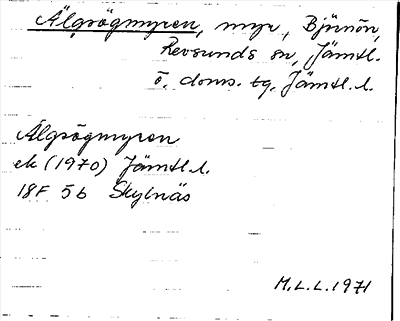 Älgsögmyren, myr, Björnön,
Revsunds sn, Jämtl.
ö. doms. tg, Jämtl. l.
Älgsögmyren
ek (1970) Jämtl. l.
18F 5b Skylnäs
M.L.L. 1971